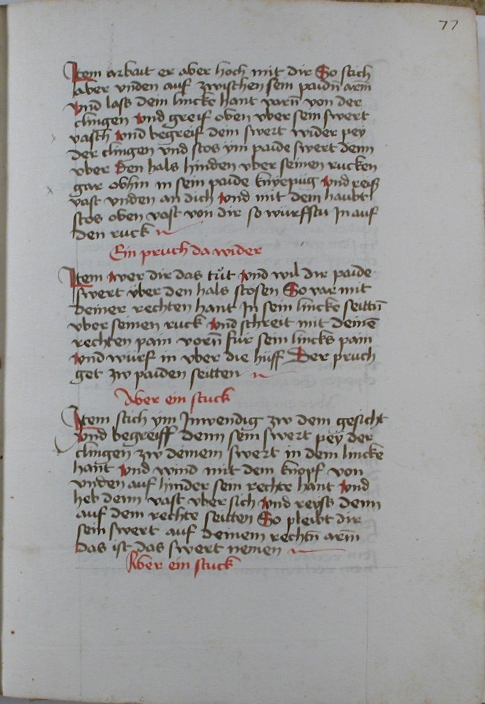 77
Item arbait er aber hoch mit dir So stich
aber vnden auf zwischen sein paidn̄ arm̄
vnd last dem lincke hant varn̄ von der
clingen vnd greif oben vber sein swert
vasch vnd begreif dem swert wider pey
der clingen vnd stos ym paide swert denn
vber den hals hinden vber seinen rucken
gar ohin in sein paide knyepüg vnd reiß
vast vnden an dich vnd mit dem haubt
stos oben vast von dir so würfstu in auf
den ruck
Ein pruch da wider
Item wer dir das tüt vnd wil dir paide
swert über den hals stosen So var mit
deiner rechten hant In sein lincke seittn̄
vber seinen ruck vnd schreit mit deinē
rechten pain vorn̄ für sein lincks pain
vnd würf in vber die hüff Der pruch
get zw paiden seitten
Aber ein stuck
Item stich ym Inwendig zw dem gesicht
vnd begreiff denn sein swert pey der
clingen zw deinem swert in dem lincke
hant vnd wind mit dem knopf von
vnden auf hinder sein rechte hant vnd
heb denn vast vber sich vnd reyß denn
auf dem rechte seitten So pleibt dir
sein swert auf deinem rechtn̄ arm̄
das ist das swert nemen
Aber ein stuck